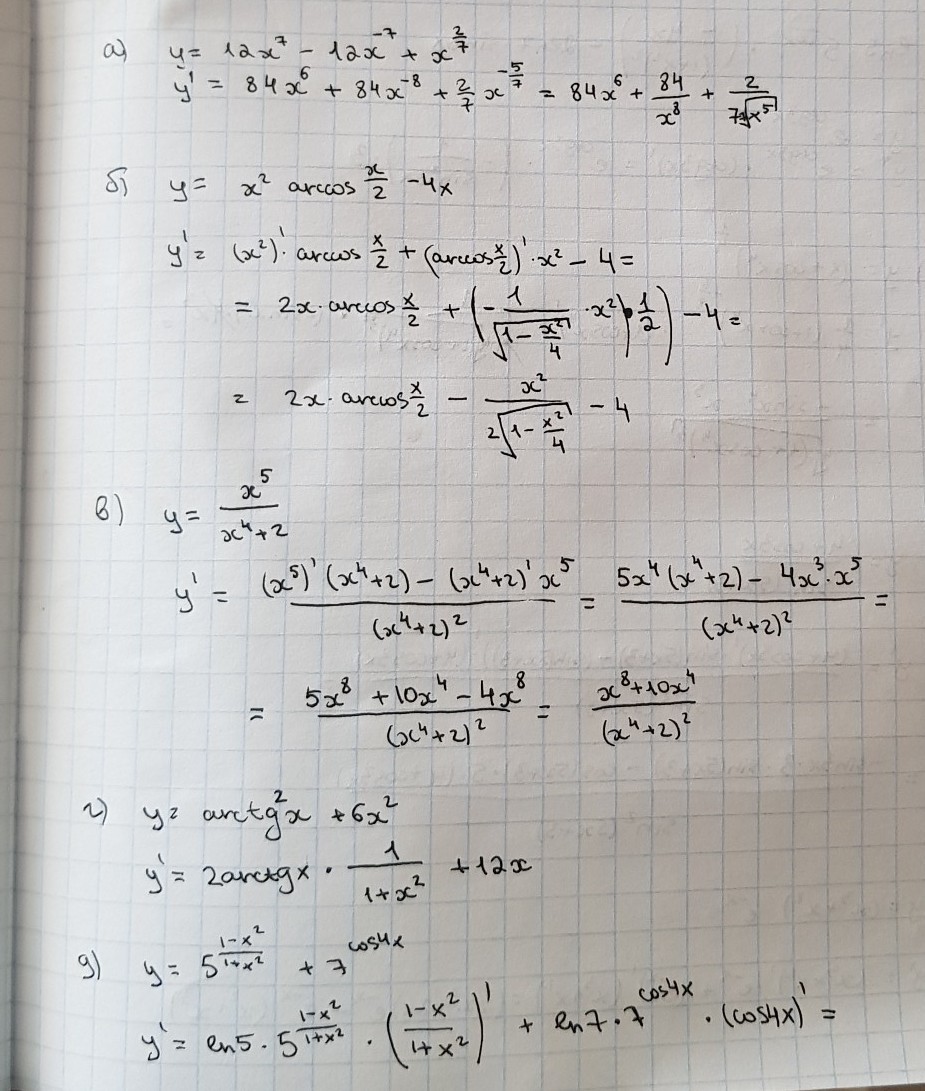 а) y = 12x^7 - 12x^{-7} + x^{2/7}
y' = 84x^6 + 84x^{-8} + 2/7 x^{-5/7} = 84x^6 + 84/x^8 + 2/(7 \sqrt[7]{x^5})
б) y = x^2 arccos x/2 - 4x
y' = (x^2)' · arccos x/2 + (arccos x/2)' · x^2 - 4 =
= 2x · arccos x/2 + (- 1/\sqrt{1 - x^2/4} · x^2) · 1/2) - 4 =
= 2x · arccos x/2 - x^2/(2\sqrt{1 - x^2/4}) - 4
в) y = x^5/(x^4+2)
y' = ((x^5)' (x^4+2) - (x^4+2)' x^5)/(x^4+2)^2 = (5x^4 (x^4+2) - 4x^3 · x^5)/(x^4+2)^2 =
= (5x^8 + 10x^4 - 4x^8)/(x^4+2)^2 = (x^8+10x^4)/(x^4+2)^2
г) y = arctg^2 x + 6x^2
y' = 2arctgx · 1/(1+x^2) + 12x
д) y = 5^{(1-x^2)/(1+x^2)} + 7^{cos4x}
y' = ln5 · 5^{(1-x^2)/(1+x^2)} · ((1-x^2)/(1+x^2))' + ln7 · 7^{cos4x} · (cos4x)' =